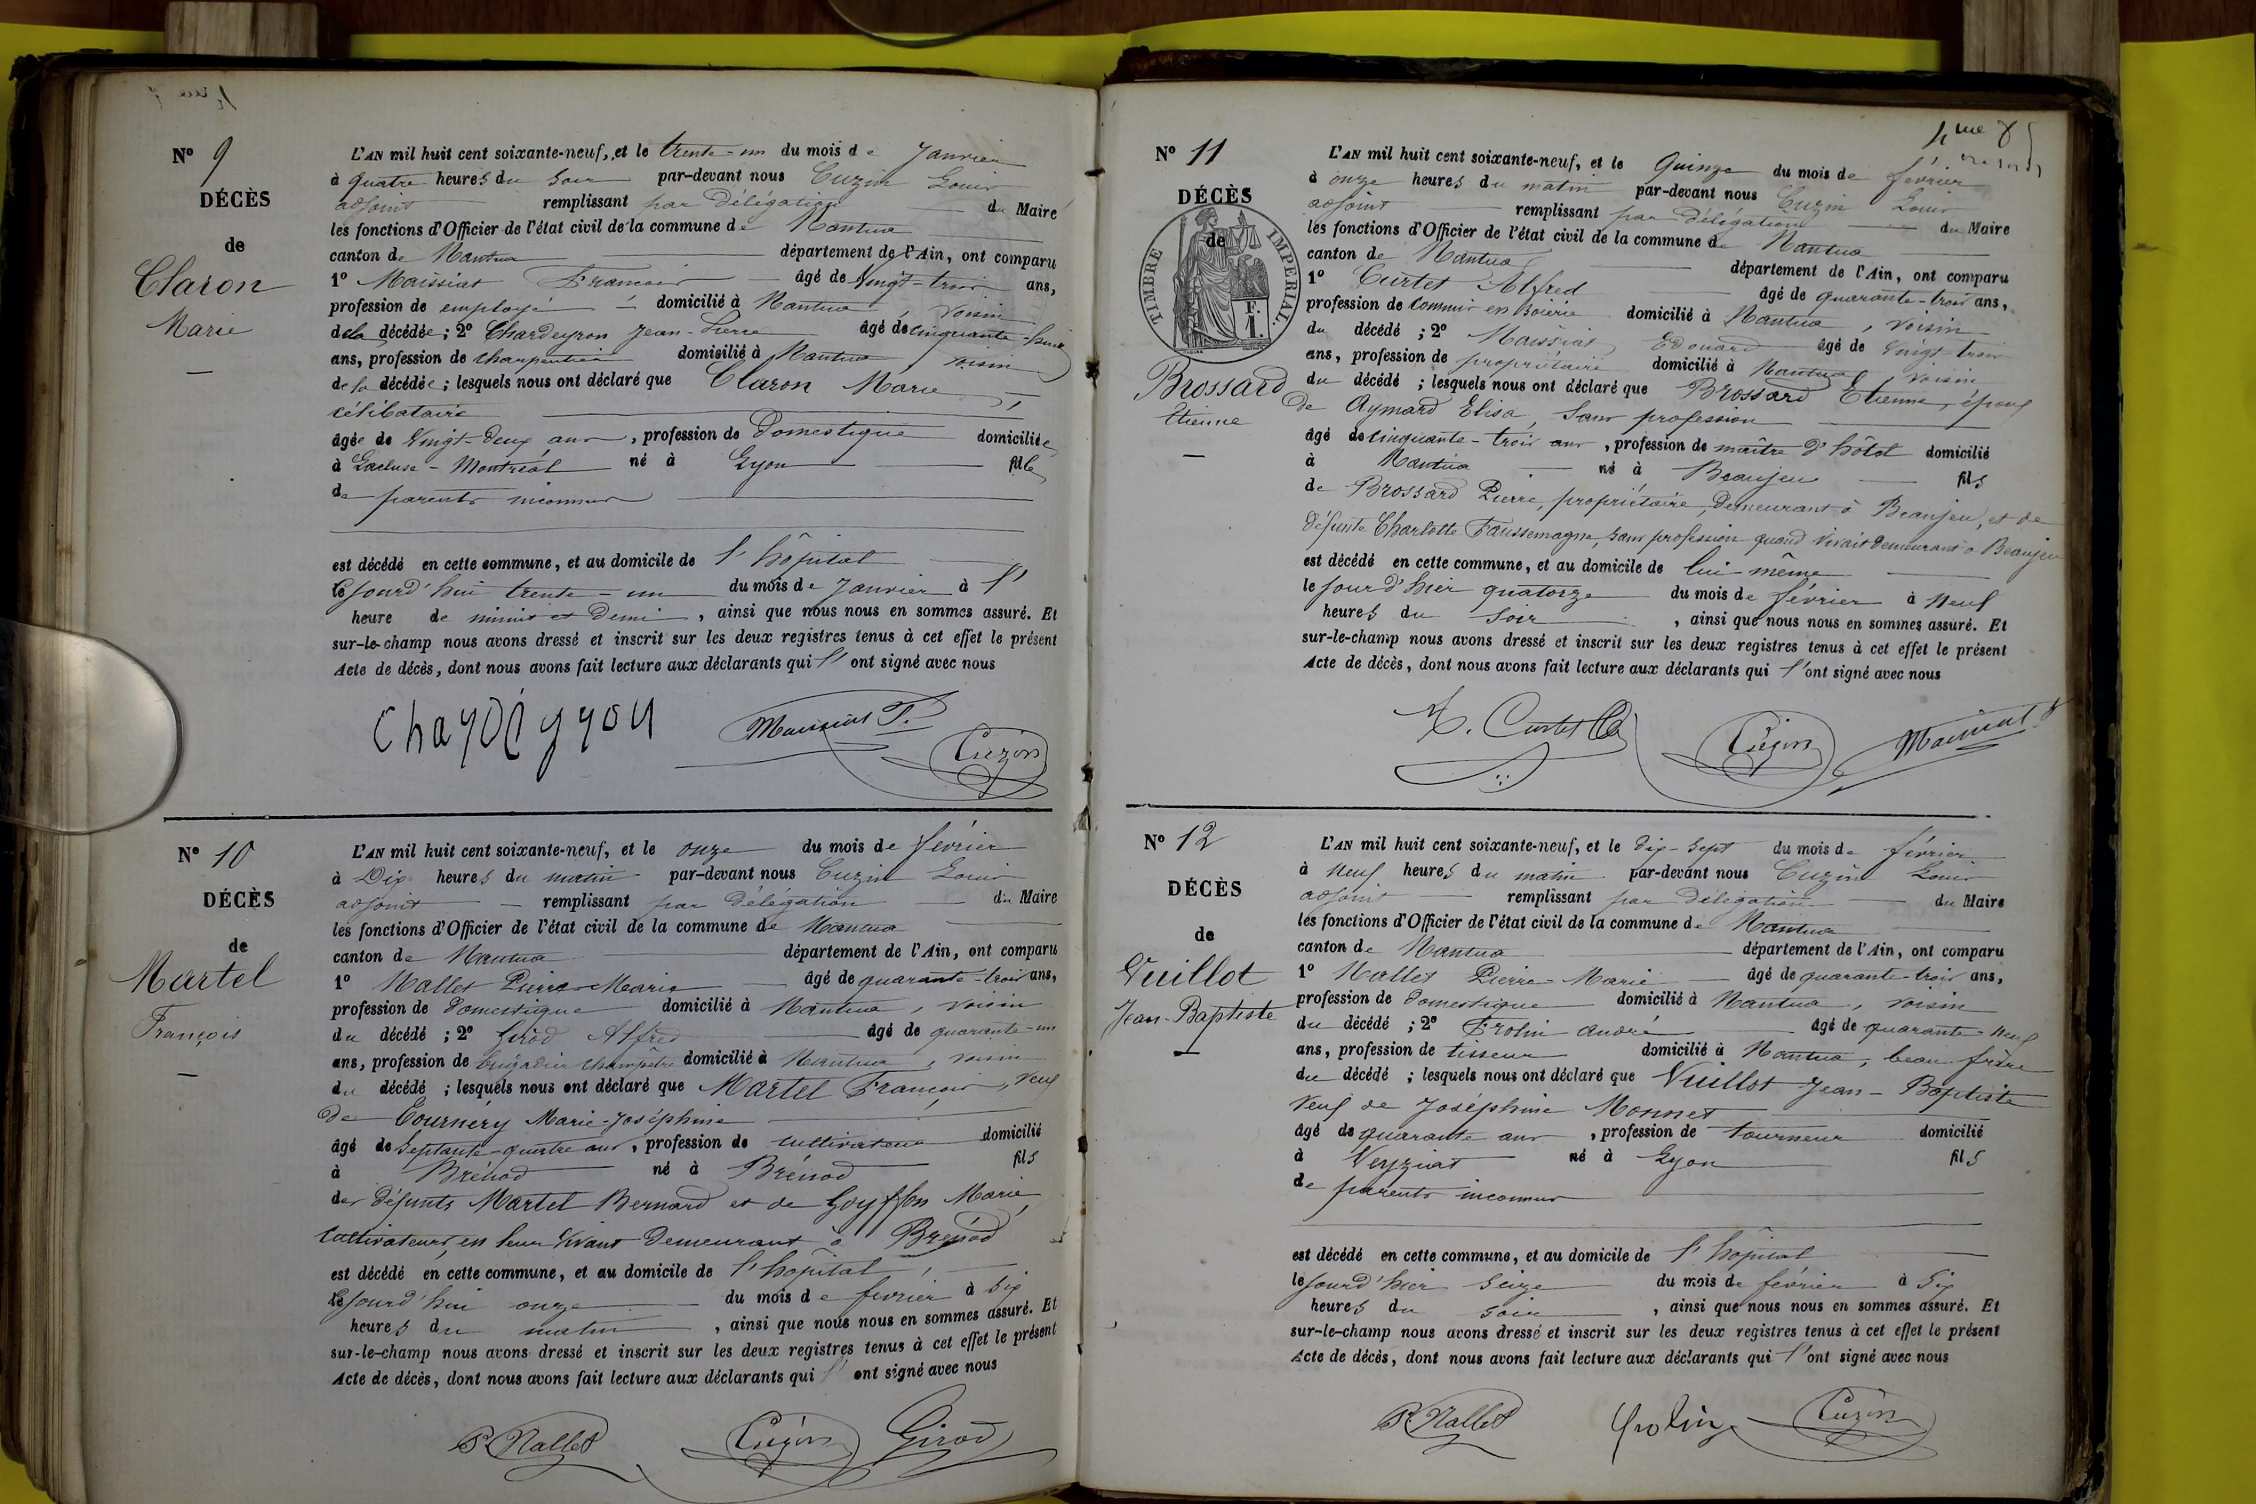 N° 9
DÉCÈS
de
Claron
Marie
L'AN mil huit cent soixante-neuf, et le trente-un du mois de Janvier
à quatre heures du soir par-devant nous Cuzin Louis
adjoint remplissant par Délégation du Maire
les fonctions d'Officier de l'état civil de la commune de Nantua
canton de Nantua département de l'Ain, ont comparu
1° Maissiat François âgé de Vingt-trois ans,
profession de employé domicilié à Nantua, Voisin
de la décédée ; 2° Chardeyron Jean-Pierre âgé de cinquante-huit
ans, profession de charpentier domicilié à Nantua voisin
de la décédée ; lesquels nous ont déclaré que Claron Marie,
célibataire
âgée de Vingt-deux ans, profession de Domestique domiciliée
à Lacluse-Montréal né à Lyon fille
de parents inconnus
est décédé en cette commune, et au domicile de l'hôpital
le jourd'hui trente-un du mois de Janvier à l'
heure de minuit et Demi, ainsi que nous nous en sommes assuré. Et
sur-le-champ nous avons dressé et inscrit sur les deux registres tenus à cet effet le présent
Acte de décès, dont nous avons fait lecture aux déclarants qui l'ont signé avec nous
Maissiat F.
Cuzin
N° 10
DÉCÈS
de
Martel
François
L'AN mil huit cent soixante-neuf, et le onze du mois de février
à Dix heures du matin par-devant nous Cuzin Louis
adjoint remplissant par Délégation du Maire
les fonctions d'Officier de l'état civil de la commune de Nantua
canton de Nantua département de l'Ain, ont comparu
1° Nallet Pierre-Marie âgé de quarante-trois ans,
profession de Domestique domicilié à Nantua, voisin
du décédé ; 2° Girod Alfred âgé de quarante-un
ans, profession de brigadier champêtre domicilié à Nantua, voisin
du décédé ; lesquels nous ont déclaré que Martel François, Veuf
de Tournéry Marie-Joséphine
âgé de Septante-quatre ans, profession de cultivateur domicilié
à Brénod né à Brénod fils
des défunts Martel Bernard et de Goyffon Marie,
cultivateurs, en leur vivant demeurant à Brénod
est décédé en cette commune, et au domicile de l'hôpital,
le jourd'hui onze du mois de février à six
heures du matin, ainsi que nous nous en sommes assuré. Et
sur-le-champ nous avons dressé et inscrit sur les deux registres tenus à cet effet le présent
Acte de décès, dont nous avons fait lecture aux déclarants qui l'ont signé avec nous
P. Nallet
Cuzin
Girod
4me
N° 11
DÉCÈS
de
TIMBRE IMPERIAL.
F.
1.
Brossard
Etienne
L'AN mil huit cent soixante-neuf, et le Quinze du mois de février
à onze heures du matin par-devant nous Cuzin Louis
adjoint remplissant par Délégation du Maire
les fonctions d'Officier de l'état civil de la commune de Nantua
canton de Nantua département de l'Ain, ont comparu
1° Curtet Alfred âgé de quarante-trois ans,
profession de commis en Soierie domicilié à Nantua, voisin
du décédé ; 2° Maissiat Edouard âgé de vingt-trois
ans, profession de propriétaire domicilié à Nantua, voisin
du décédé ; lesquels nous ont déclaré que Brossard Etienne, époux
de Aymard Elisa, sans profession
âgé de cinquante-trois ans, profession de maître d'hôtel domicilié
à Nantua né à Beaujeu fils
de Brossard Pierre, propriétaire, Demeurant à Beaujeu, et de
défunte Charlotte Faussemagne, sans profession quand vivait demeurant à Beaujeu
est décédé en cette commune, et au domicile de lui-même
le jour d'hier quatorze du mois de février à neuf
heures du soir, ainsi que nous nous en sommes assuré. Et
sur-le-champ nous avons dressé et inscrit sur les deux registres tenus à cet effet le présent
Acte de décès, dont nous avons fait lecture aux déclarants qui l'ont signé avec nous
A. Curtet
Cuzin
Maissiat
N° 12
DÉCÈS
de
Vuillot
Jean-Baptiste
L'AN mil huit cent soixante-neuf, et le dix-sept du mois de février
à neuf heures du matin par-devant nous Cuzin Louis
adjoint remplissant par Délégation du Maire
les fonctions d'Officier de l'état civil de la commune de Nantua
canton de Nantua département de l'Ain, ont comparu
1° Nallet Pierre-Marie âgé de quarante-trois ans,
profession de domestique domicilié à Nantua, voisin
du décédé ; 2° Frolin André âgé de quarante-neuf
ans, profession de tisseur domicilié à Nantua, beau-frère
du décédé ; lesquels nous ont déclaré que Vuillot Jean-Baptiste
veuf de Joséphine Monnet
âgé de quarante ans, profession de tourneur domicilié
à Veyziat né à Lyon fils
de parents inconnus
est décédé en cette commune, et au domicile de l'hôpital
le jourd'hier seize du mois de février à six
heures du soir, ainsi que nous nous en sommes assuré. Et
sur-le-champ nous avons dressé et inscrit sur les deux registres tenus à cet effet le présent
Acte de décès, dont nous avons fait lecture aux déclarants qui l'ont signé avec nous
P. Nallet
frolin
Cuzin